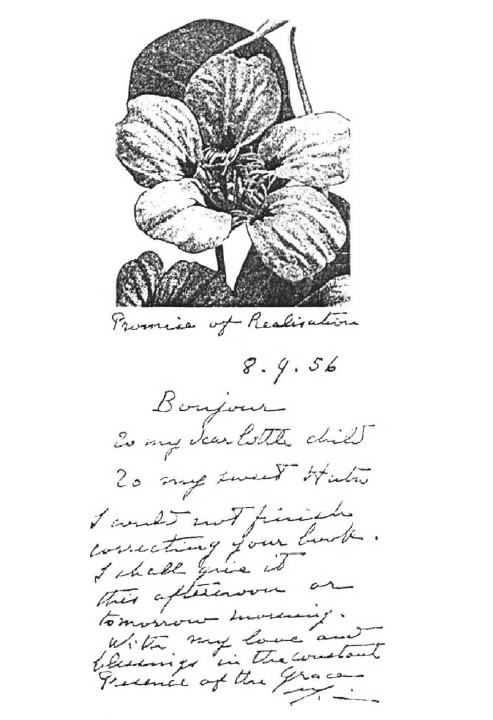 Promise of Realisation
8.9.56
Bonjour
To my dear little child
To my sweet Huta
I could not finish
correcting your book.
I shall give it
this afternoon or
tomorrow morning.
With my love and
blessings in the constant
Presence of the Grace